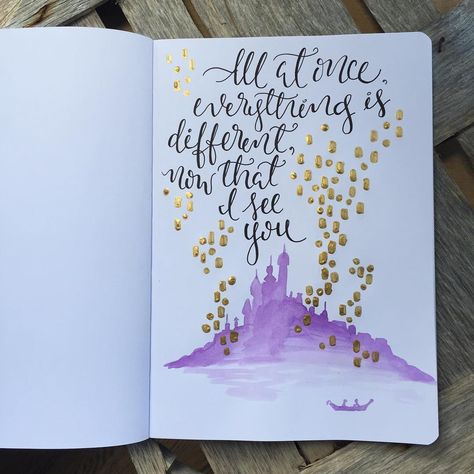 All at once,
everything is
different,
now that
I see
you